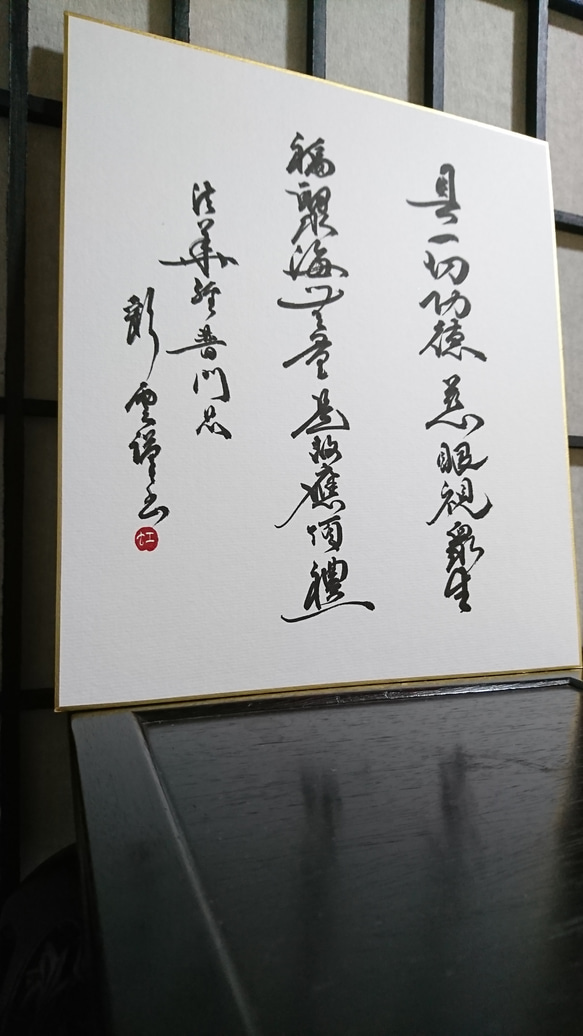 具一切功德慈眼視衆生
福聚海無量是故應頂禮
法華経普門品
彩雲謹書
虹